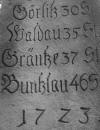 Görlitz 30 S
Waldau 35 St
Gräntze 37 St
Buntzlau 46 S
1723